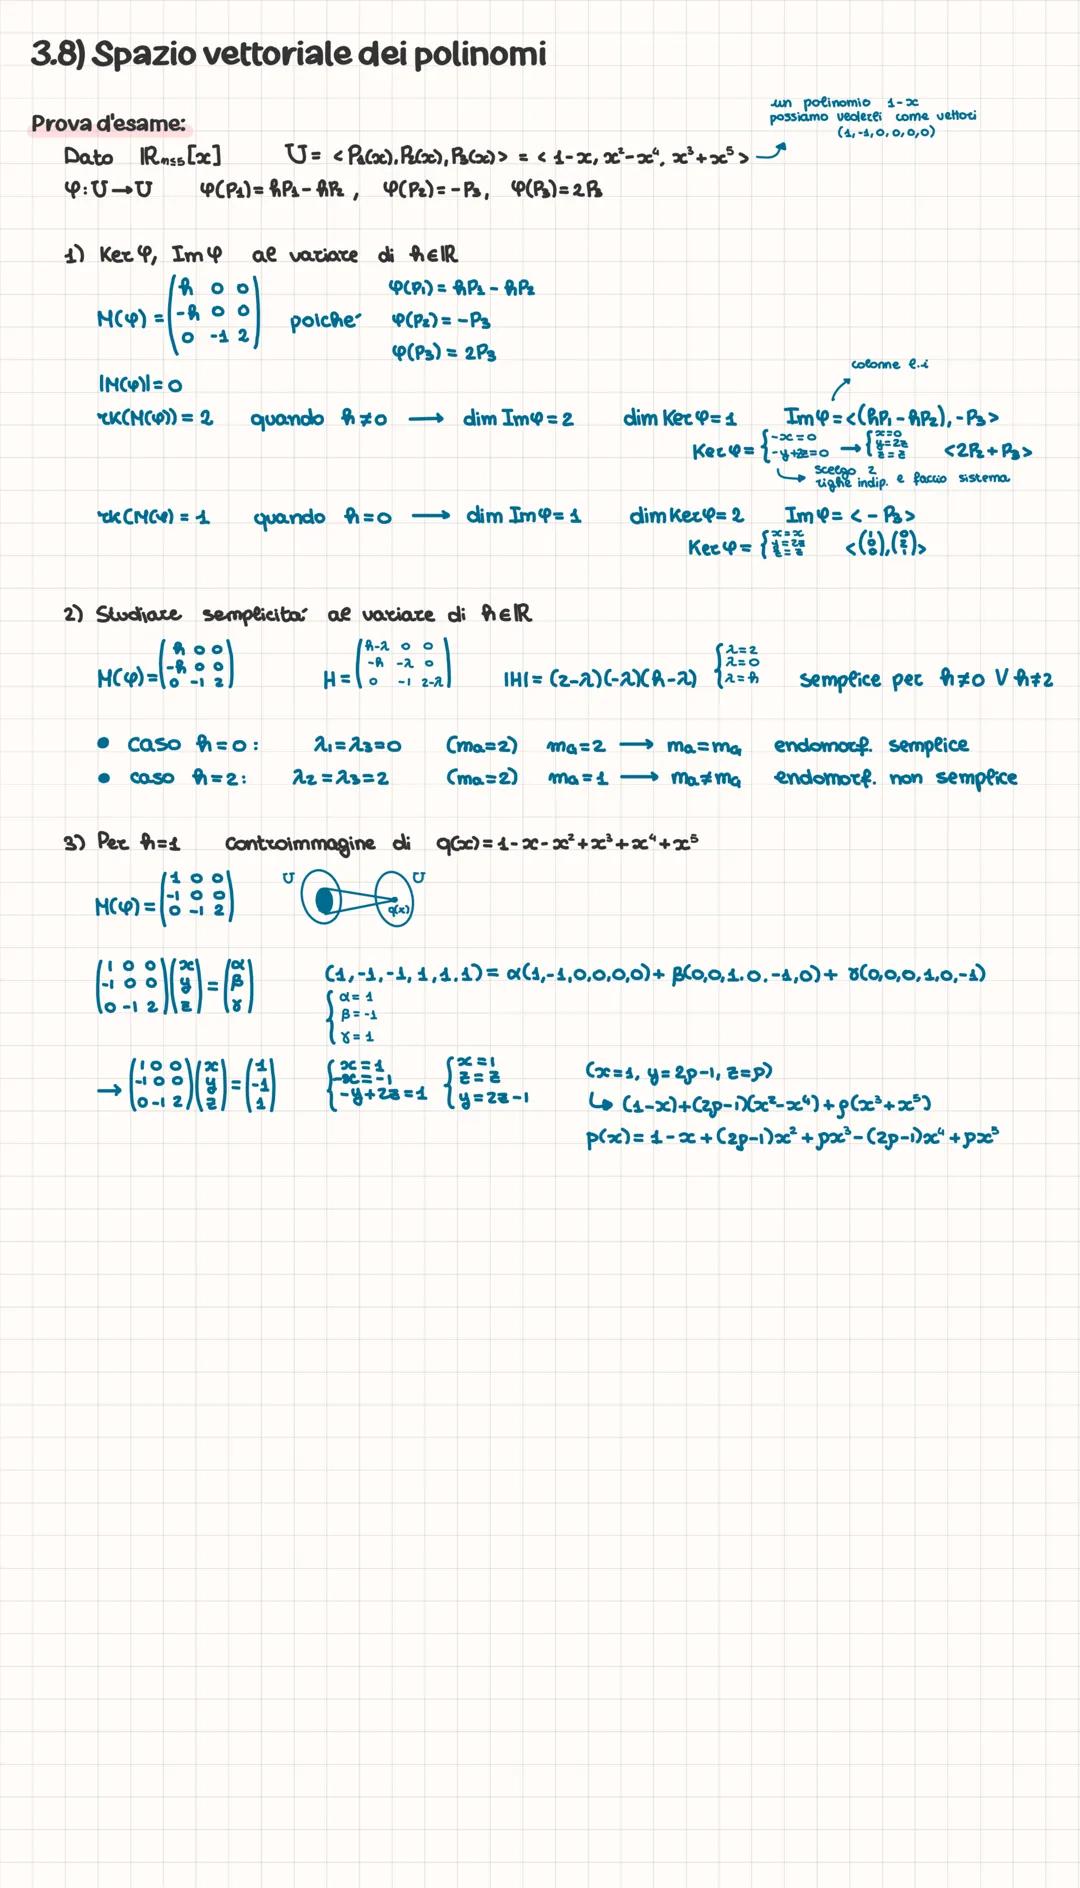 3.8) Spazio vettoriale dei polinomi
un polinomio 1-x
possiamo vederli come vettori
(1,-1,0,0,0,0)
Prova d'esame:
Dato ℝₙ≤₅[x] U = <P₁(x), P₂(x), P₃(x)> = <1-x, x²-x⁴, x³+x⁵>
φ: U→U φ(P₁) = hP₁ - hP₂, φ(P₂) = -P₃, φ(P₃) = 2P₃
1) Ker φ, Im φ al variare di h∈ℝ
M(φ) = (h 0 0 / -h 0 0 / 0 -1 2) poiché
φ(P₁) = hP₁ - hP₂
φ(P₂) = -P₃
φ(P₃) = 2P₃
|M(φ)| = 0
colonne l.i
rk(M(φ)) = 2 quando h≠0 → dim Im φ = 2 dim Ker φ = 1 Im φ = <(hP₁ - hP₂), -P₃>
Ker φ = { -x=0 / -y+2z=0 → { x=0 / y=2z / z=z <2P₂+P₃>
scelgo 2 righe indip. e faccio sistema
rk(M(φ)) = 1 quando h=0 → dim Im φ = 1 dim Ker φ = 2 Im φ = <-P₃>
Ker φ = { x=x / y=2z / z=z <(1 / 0 / 0), (0 / 2 / 1)>
2) Studiare semplicità al variare di h∈ℝ
M(φ) = (h 0 0 / -h 0 0 / 0 -1 2) H = (h-λ 0 0 / -h -λ 0 / 0 -1 2-λ) |H| = (2-λ)(-λ)(h-λ) { λ=2 / λ=0 / λ=h semplice per h≠0 V h≠2
• caso h=0: λ₁=λ₃=0 (ma=2) mg=2 → ma=mg endomorf. semplice
• caso h=2: λ₂=λ₃=2 (ma=2) mg=1 → ma≠mg endomorf. non semplice
3) Per h=1 Controimmagine di q(x) = 1-x-x²+x³+x⁴+x⁵
M(φ) = (1 0 0 / -1 0 0 / 0 -1 2) U U q(x)
(1 0 0 / -1 0 0 / 0 -1 2)(x / y / z) = (α / β / γ) (1,-1,-1,1,1,1) = α(1,-1,0,0,0,0) + β(0,0,1,0,-1,0) + γ(0,0,0,1,0,-1)
{ α=1 / β=-1 / γ=1
→ (1 0 0 / -1 0 0 / 0 -1 2)(x / y / z) = (1 / -1 / 1) { x=1 / -x=-1 / -y+2z=1 { x=1 / z=z / y=2z-1 (x=1, y=2p-1, z=p)
↳ (1-x)+(2p-1)(x²-x⁴)+p(x³+x⁵)
p(x) = 1-x+(2p-1)x²+px³-(2p-1)x⁴+px⁵